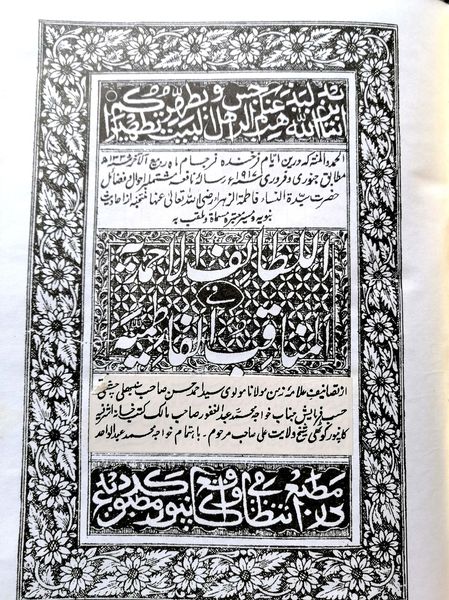 انما یرید الله لیذهب عنکم الرجس اهل البیت ویطهرکم تطهیرا
الحمد والمنہ کہ درین ایام فرخندہ فرجام ماہ ربیع الآخر ۱۳۳۵ھ
مطابق جنوری و فروری ۱۹۱۷ء رسالہ نافعہ مشتملہ احوال و فضائل
حضرت سیدۃ النساء فاطمۃ الزہرا رضی اللہ تعالیٰ عنہا منتخبہ از احادیث
نبویہ و سیر معتبرہ مسماۃ و ملقب بہ
اللطایف الاحمدیة
فی
المناقب الفاطمیة
از تصانیف علامہ زمن مولانا مولوی سید احمد حسن صاحب سنبھلی چشتی
حسب فرمایش جناب خواجہ محمد عبدالغفور صاحب مالک کتبخانہ اشرفیہ
کانپور کوٹھی شیخ ولایت علی صاحب مرحوم۔ باہتمام خواجہ محمد عبدالواحد
در مطبع انتظامی واقع کانپور مطبوع